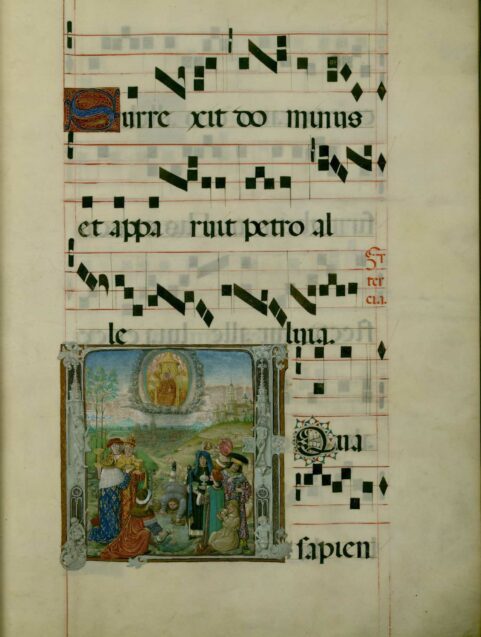 Surre xit do minus
et appa ruit petro al
ter
cia.
le luia.
Qua
sapien